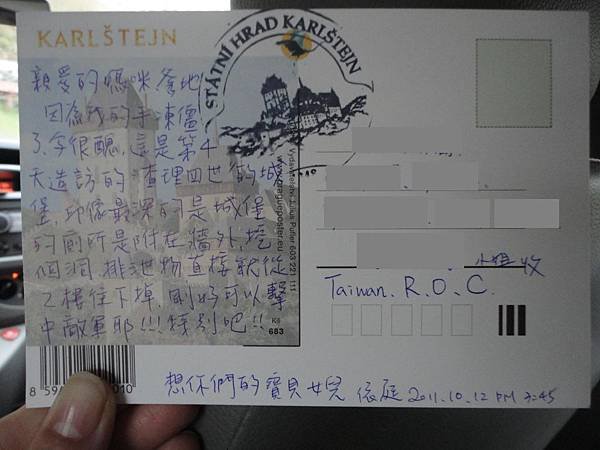 KARLŠTEJN
STÁTNÍ HRAD KARLŠTEJN
親愛的媽咪爹地
因為我的手凍僵
了,字很醜,這是第4
天造訪的查理四世的城
堡,印像最深的是城堡
的廁所是附在牆外,挖
個洞,排泄物直接就從
2樓往下掉,剛好可以擊
中敵軍耶!!!特別吧!!
小姐收
Taiwan. R. O. C.
683
想你們的寶貝女兒 依庭 2011.10.12 PM 3:45